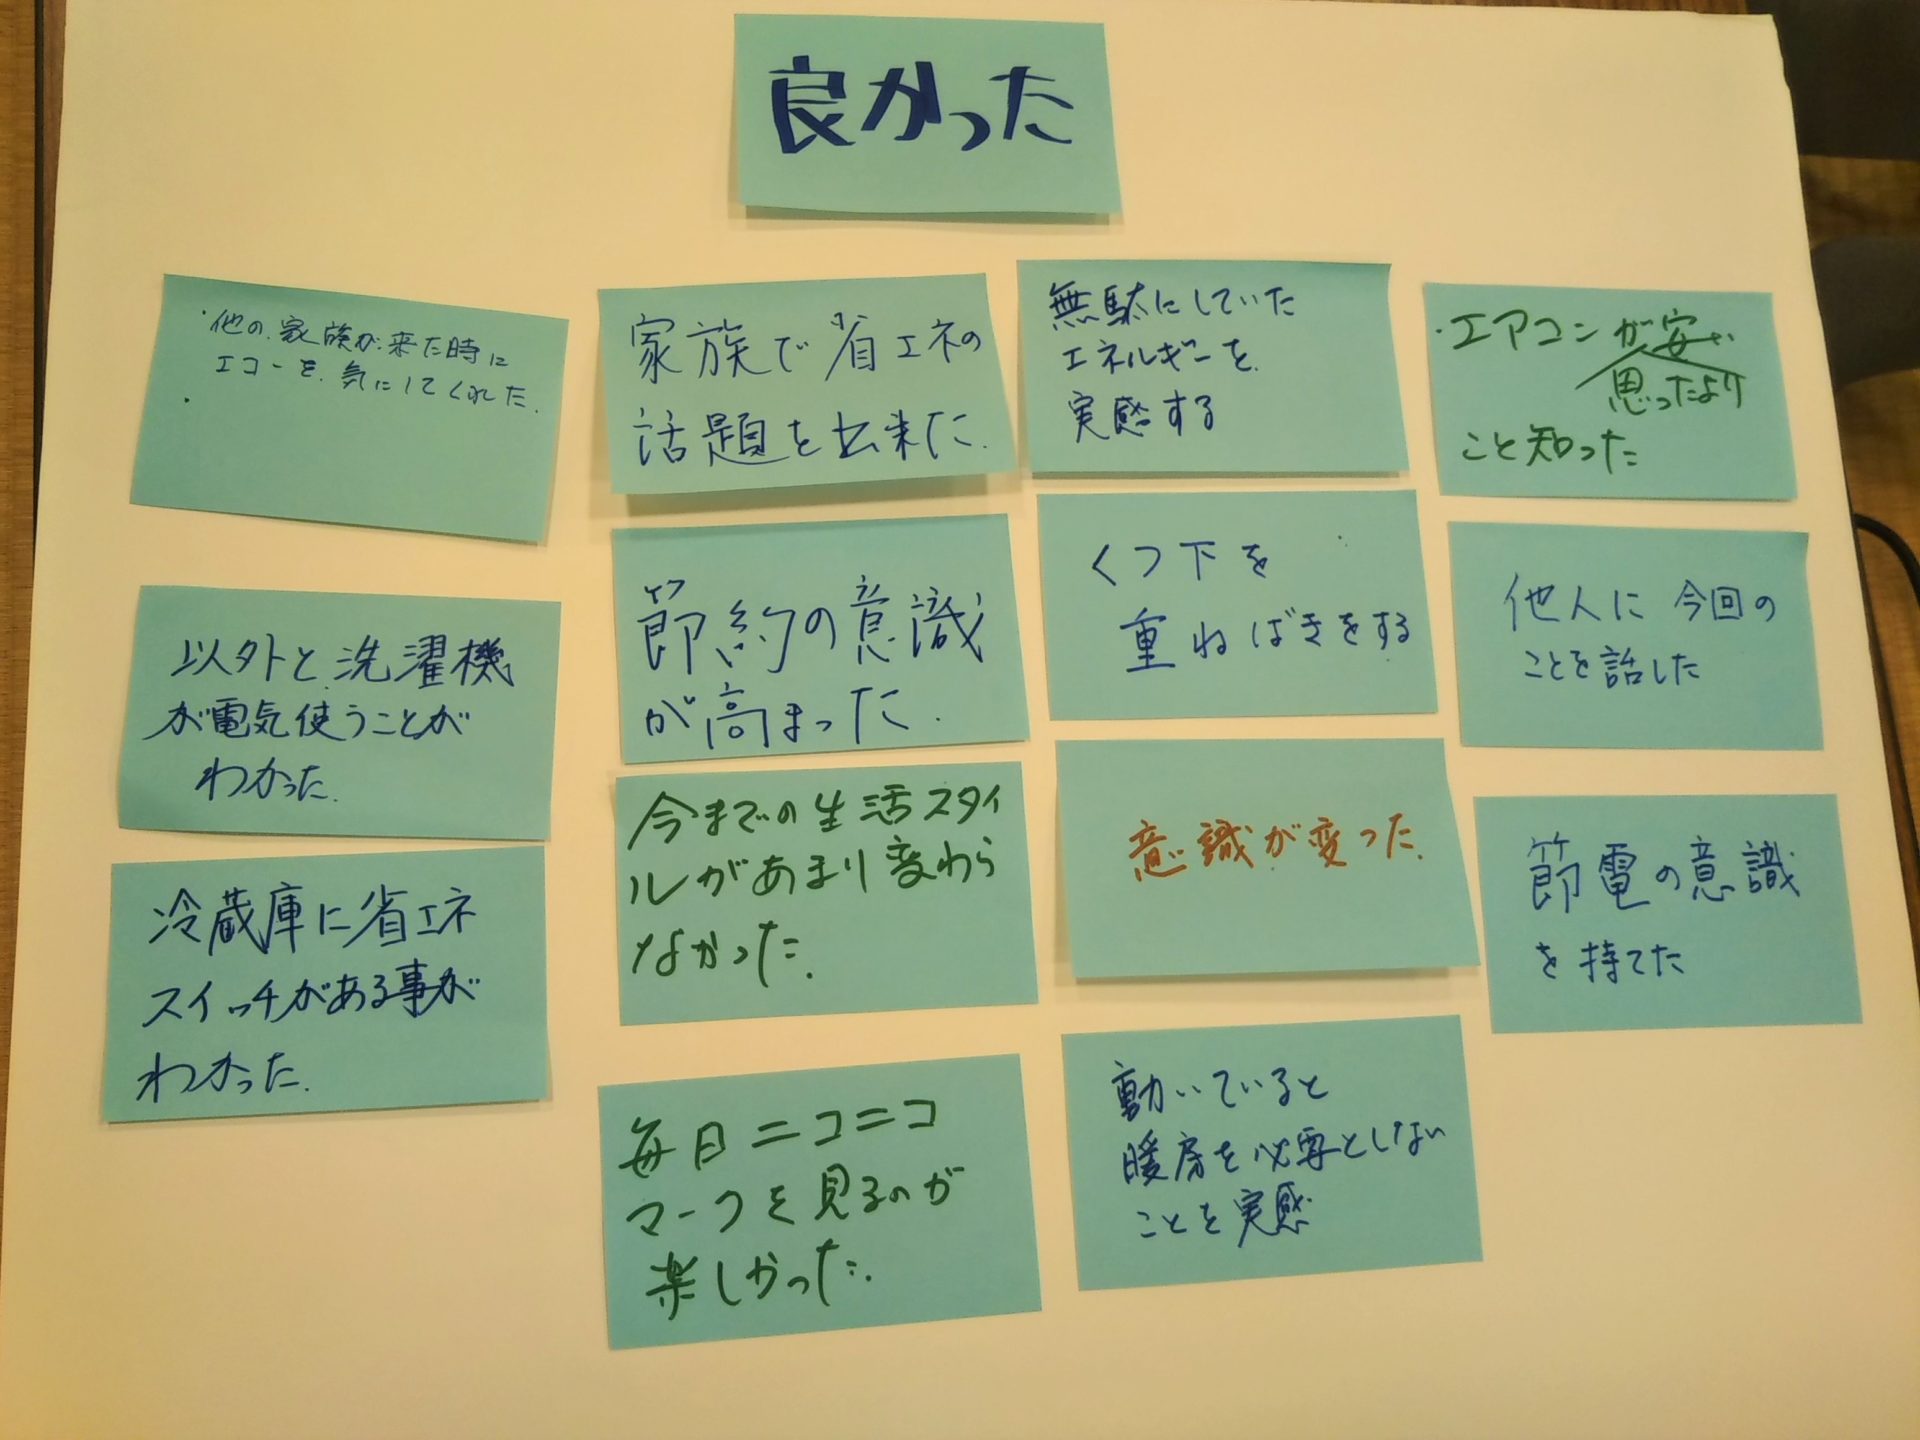 良かった
・他の家族が来た時に
エコーを気にしてくれた.
・
以外と洗濯機
が電気使うことが
わかった.
冷蔵庫に省エネ
スイッチがある事が
わかった.
家族で省エネの
話題を出来た.
節約の意識
が高まった.
今までの生活スタイ
ルがあまり変わら
なかった.
毎日ニコニコ
マークを見るのが
楽しかった.
無駄にしていた
エネルギーを
実感する
くつ下を
重ねばきをする
意識が変った.
動いていると
暖房を必要としない
ことを実感
・エアコンが安い
思ったより
こと知った
他人に今回の
ことを話した
節電の意識
を持てた